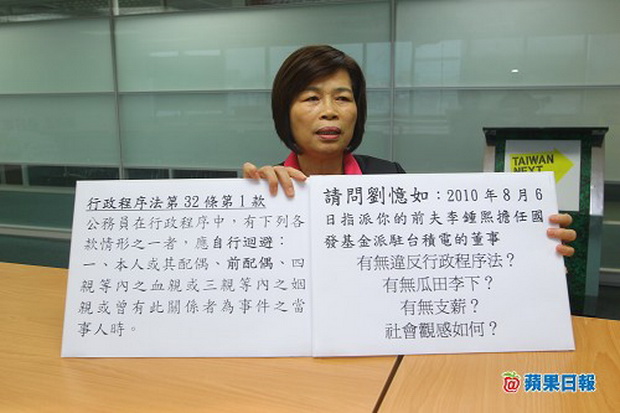 TAIWAN
NEXT
行政程序法第32條第1款
公務員在行政程序中,有下列各
款情形之一者,應自行迴避:
一、本人或其配偶、前配偶、四
親等內之血親或三親等內之姻
親或曾有此關係者為事件之當
事人時。
請問劉憶如:2010年8月6
日指派你的前夫李鍾熙擔任國
發基金派駐台積電的董事
有無違反行政程序法?
有無瓜田李下?
有無支薪?
社會觀感如何?
@蘋果日報